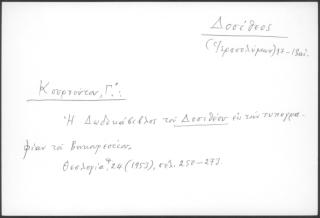 Δοσίθεος
(Ἱεροσολύμων) 17-18 αἰ.
Κουρνούτου, Γ.:
Ἡ Δωδεκάβιβλος τοῦ Δοσιθέου εἰς τὴν τυπογρα-
φίαν τοῦ Βουκουρεστίου,
Θεολογία, 24 (1953), σελ. 250-273.